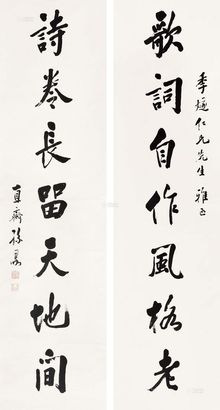 歌詞自作風格老
季𢋨仁兄先生 雅正
詩卷長留天地間
直齋孫墨